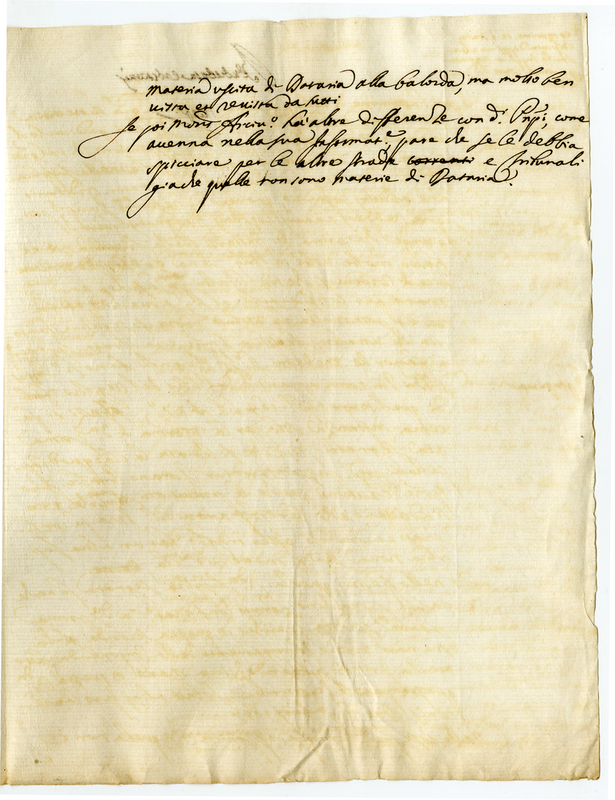 materia uscita di Dataria alla balorda, ma molto ben
vista et revista da tutti
Se poi Mons.r Arciv.o ha altre differenze con d.i Pnpi: come
accenna nella sua Informat.e, pare che se le debbia
spicciare per le altre strade correnti e tribunali
giache quelle non sono materie di Dataria.